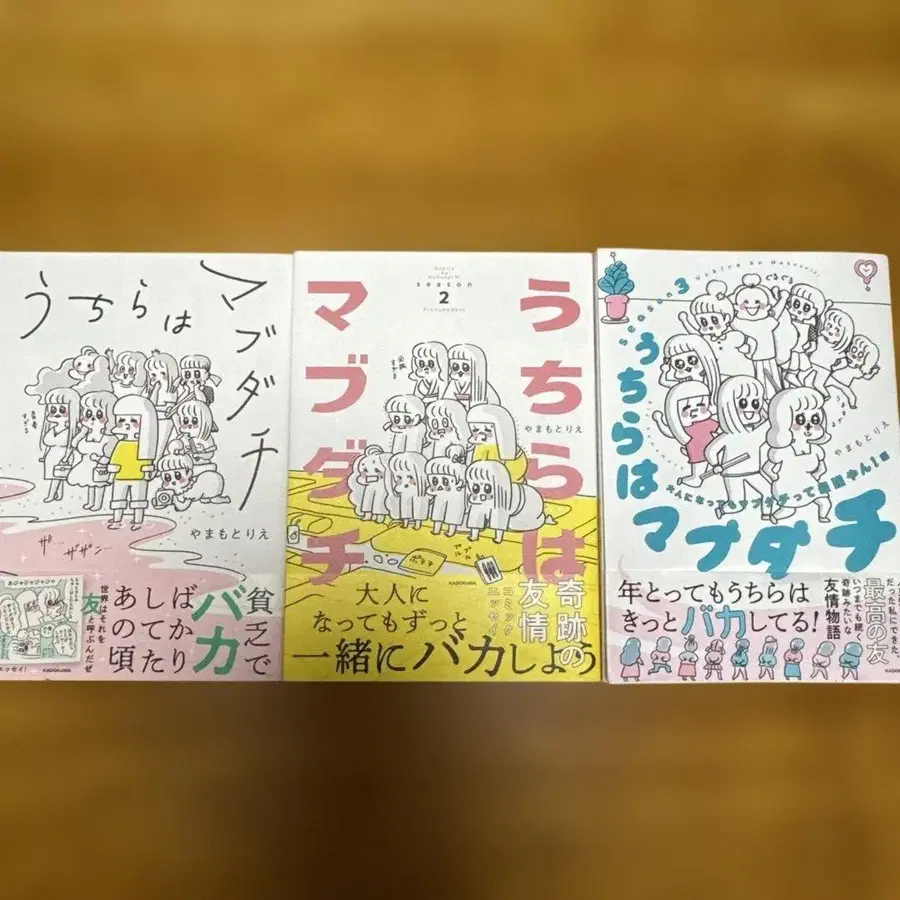 うちらは
マブダチ
やまもとりえ
ザ…ザザン…
貧乏で
バカ
ばっか
してたり
あの頃
世界はそれを
友と呼ぶんだぜ
おじゃじゃじゃじゃ
エッセイ!
KADOKAWA
season
2
うちらは
マブダチ
やまもとりえ
ポテチ
KADOKAWA
奇跡の
友情
コミック
エッセイ
大人に
なってもずっと
一緒にバカしよう
season3
ぐるぐる
うちらは
マブダチ
やまもとりえ
年とってもうちらは
きっとバカしてる!
だった私にできた、
最高の友
いつまでも続く
奇跡みたいな
友情物語
KADOKAWA